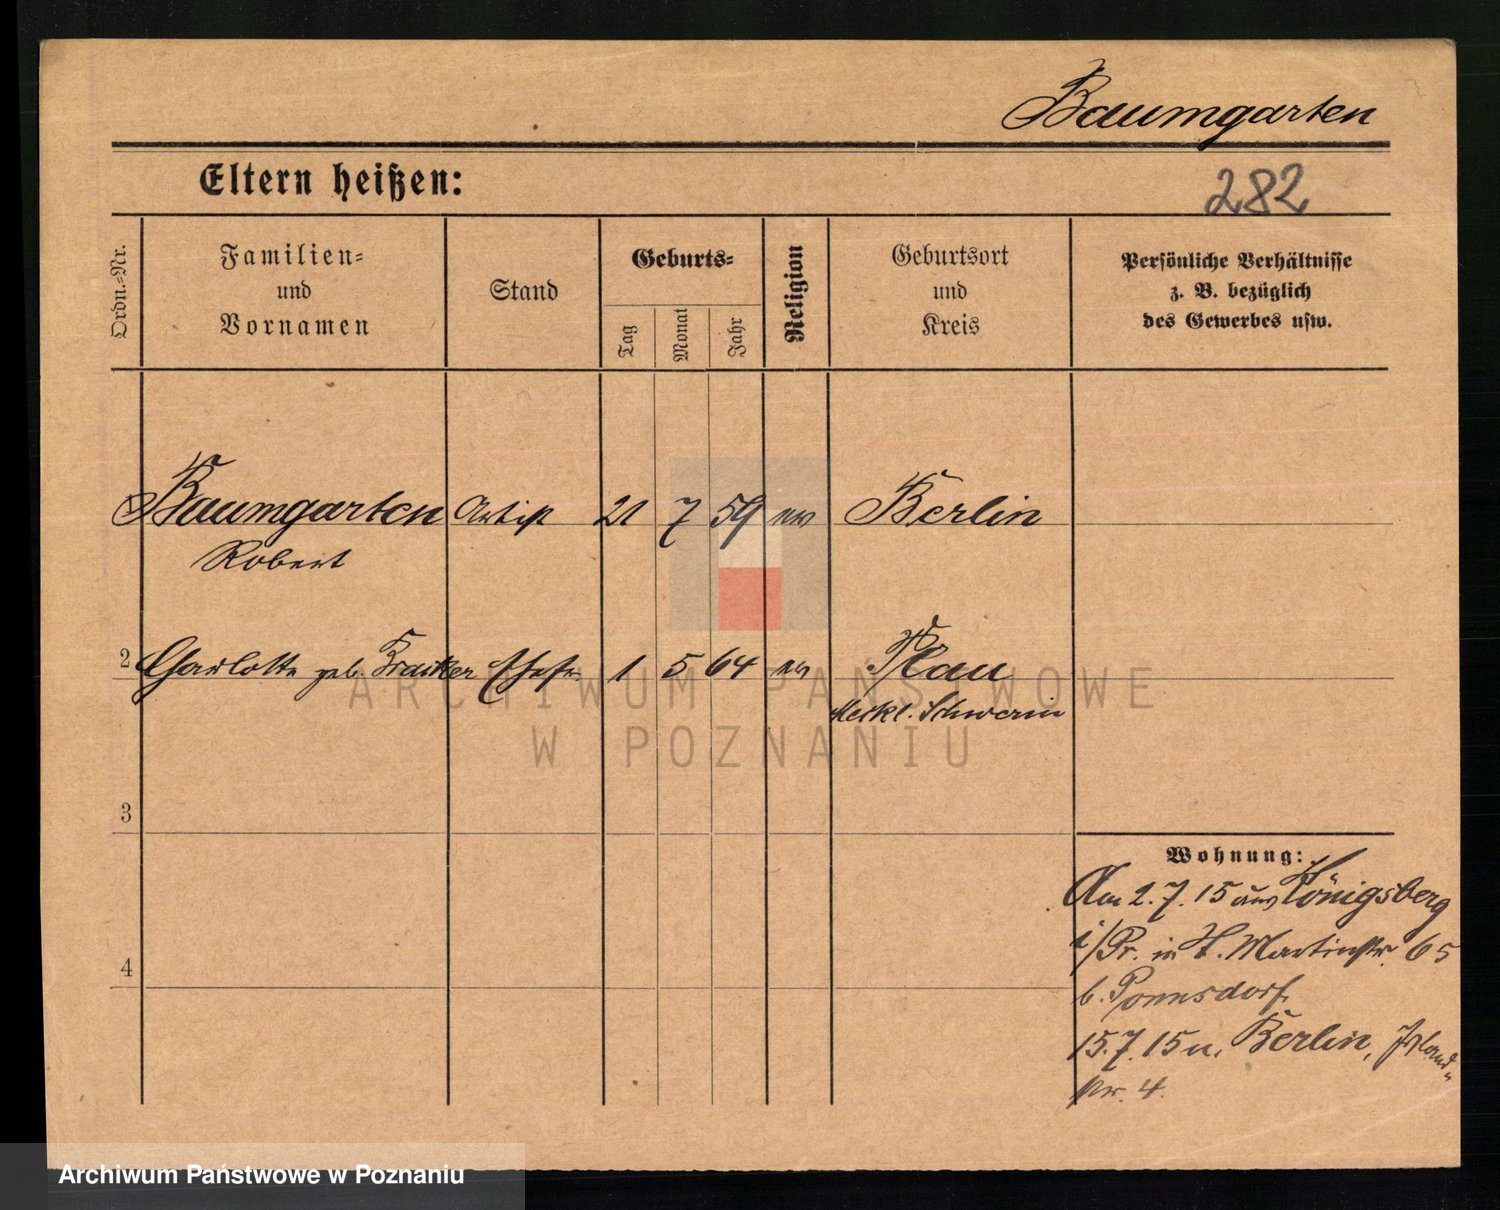 Baumgarten
Eltern heißen:
282
Ordn.=Nr.
Familien=
und
Vornamen
Stand
Geburts=
Tag
Monat
Jahr
Religion
Geburtsort
und
Kreis
Persönliche Verhältnisse
z. B. bezüglich
des Gewerbes usw.
Baumgarten Artist 21 7 59 ev Berlin
Robert
2 Charlotte geb. Ehefr. 1 5 64 ev Plau
Meckl. Schwerin
3
4
Wohnung:
Am 2. 7. 15 aus Königsberg
i/Pr. in St. Martinstr. 65
b. Ponnsdorf
15. 7. 15 n. Berlin,
str. 4.
ARCHIWUM PAŃSTWOWE
W POZNANIU
Archiwum Państwowe w Poznaniu